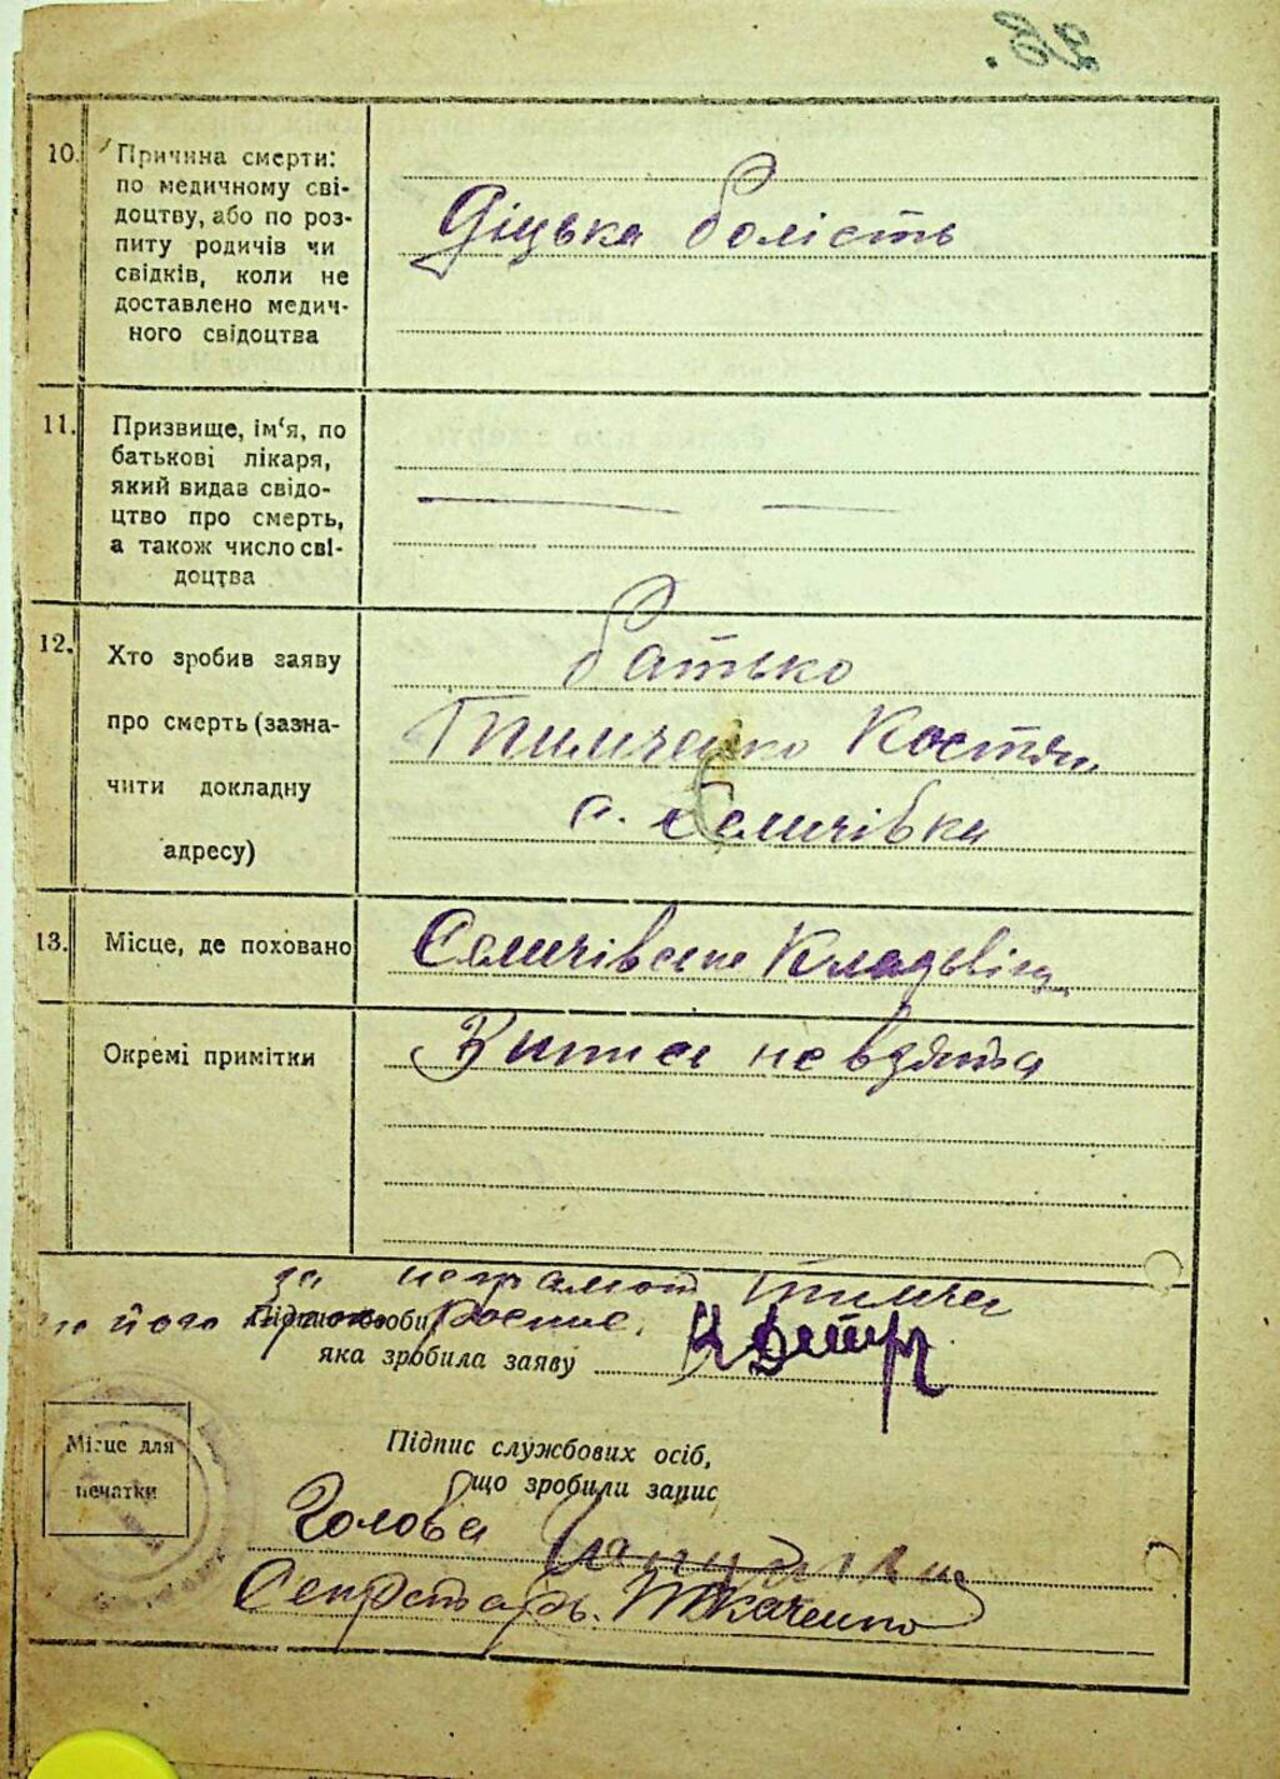 26.
10. Причина смерти:
по медичному сві-
доцтву, або по роз-
питу родичів чи
свідків, коли не
доставлено медич-
ного свідоцтва
Діцька болість
11. Призвище, ім‘я, по
батькові лікаря,
який видав свідо-
цтво про смерть,
а також число сві-
доцтва
12. Хто зробив заяву
про смерть (зазна-
чити докладну
адресу)
батько
Тимченко Костян
с. Семичівка
13. Місце, де поховано
Семичівське Кладьвіще
Окремі примітки
Виписі не взято
за неграмот Тимчен
по його розпис.
Підпис особи,
яка зробила заяву
Місце для
печатки
Підпис службових осіб,
що зробили запис
Голова
Секретарь. Ткаченко